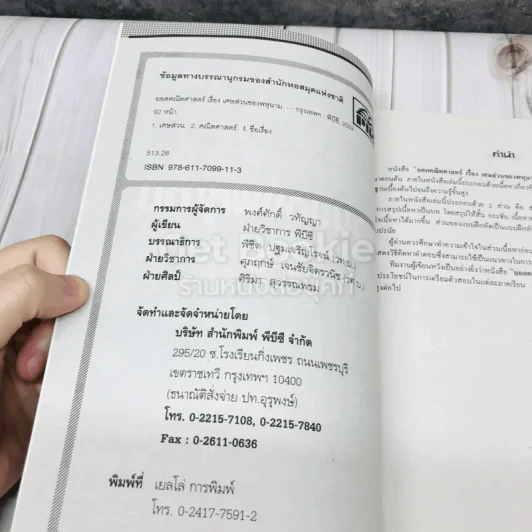 ข้อมูลทางบรรณานุกรมของสำนักหอสมุดแห่งชาติ
ยอดคณิตศาสตร์ เรื่อง เศษส่วนของพหุนาม. - - กรุงเทพฯ : พีบีซี,
92 หน้า
1. เศษส่วน. 2. คณิตศาสตร์. I. ชื่อเรื่อง
513.26
ISBN 978-611-7099-11-3
กรรมการผู้จัดการ พงศ์ศักดิ์ วทัญญา
ผู้เขียน ฝ่ายวิชาการ พีบีซี
บรรณาธิการ พิชิต ปฐมเจริญโรจน์ (วท.บ.)
ฝ่ายวิชาการ ศุภฤกษ์ เจนชัยจิตรวนิช
ฝ่ายศิลป์ ศิริมา สุวรรณพรม
จัดทำและจัดจำหน่ายโดย
บริษัท สำนักพิมพ์ พีบีซี จำกัด
295/20 ซ.โรงเรียนกิ่งเพชร ถนนเพชรบุรี
เขตราชเทวี กรุงเทพฯ 10400
(ธนาณัติสั่งจ่าย ปท.อุรุพงษ์)
โทร. 0-2215-7108, 0-2215-7840
Fax : 0-2611-0636
พิมพ์ที่ เยลโล่ การพิมพ์
โทร. 0-2417-7591-2
คำนำ
หนังสือ "ยอดคณิตศาสตร์ เรื่อง เศษส่วนของพหุนาม
ภายในหนังสือเล่มนี้ประกอบด้วย
ฐานเบื้องต้นไปจนถึงความรู้ขั้นสูง
ภายในหนังสือเล่มนี้ประกอบด้วย 2 ส่วน คือ
การสรุปเนื้อหาเป็นบท โดยสรุปให้สั้น กระชับ
ผู้อ่านควรศึกษาทำความเข้าใจในส่วนเนื้อหาก่อน
ทีมงานผู้เขียนหวังเป็นอย่างยิ่งว่าหนังสือ "ยอดคณิต
ประโยชน์ในการเตรียมตัวสอบในแต่ละภาคเรียน